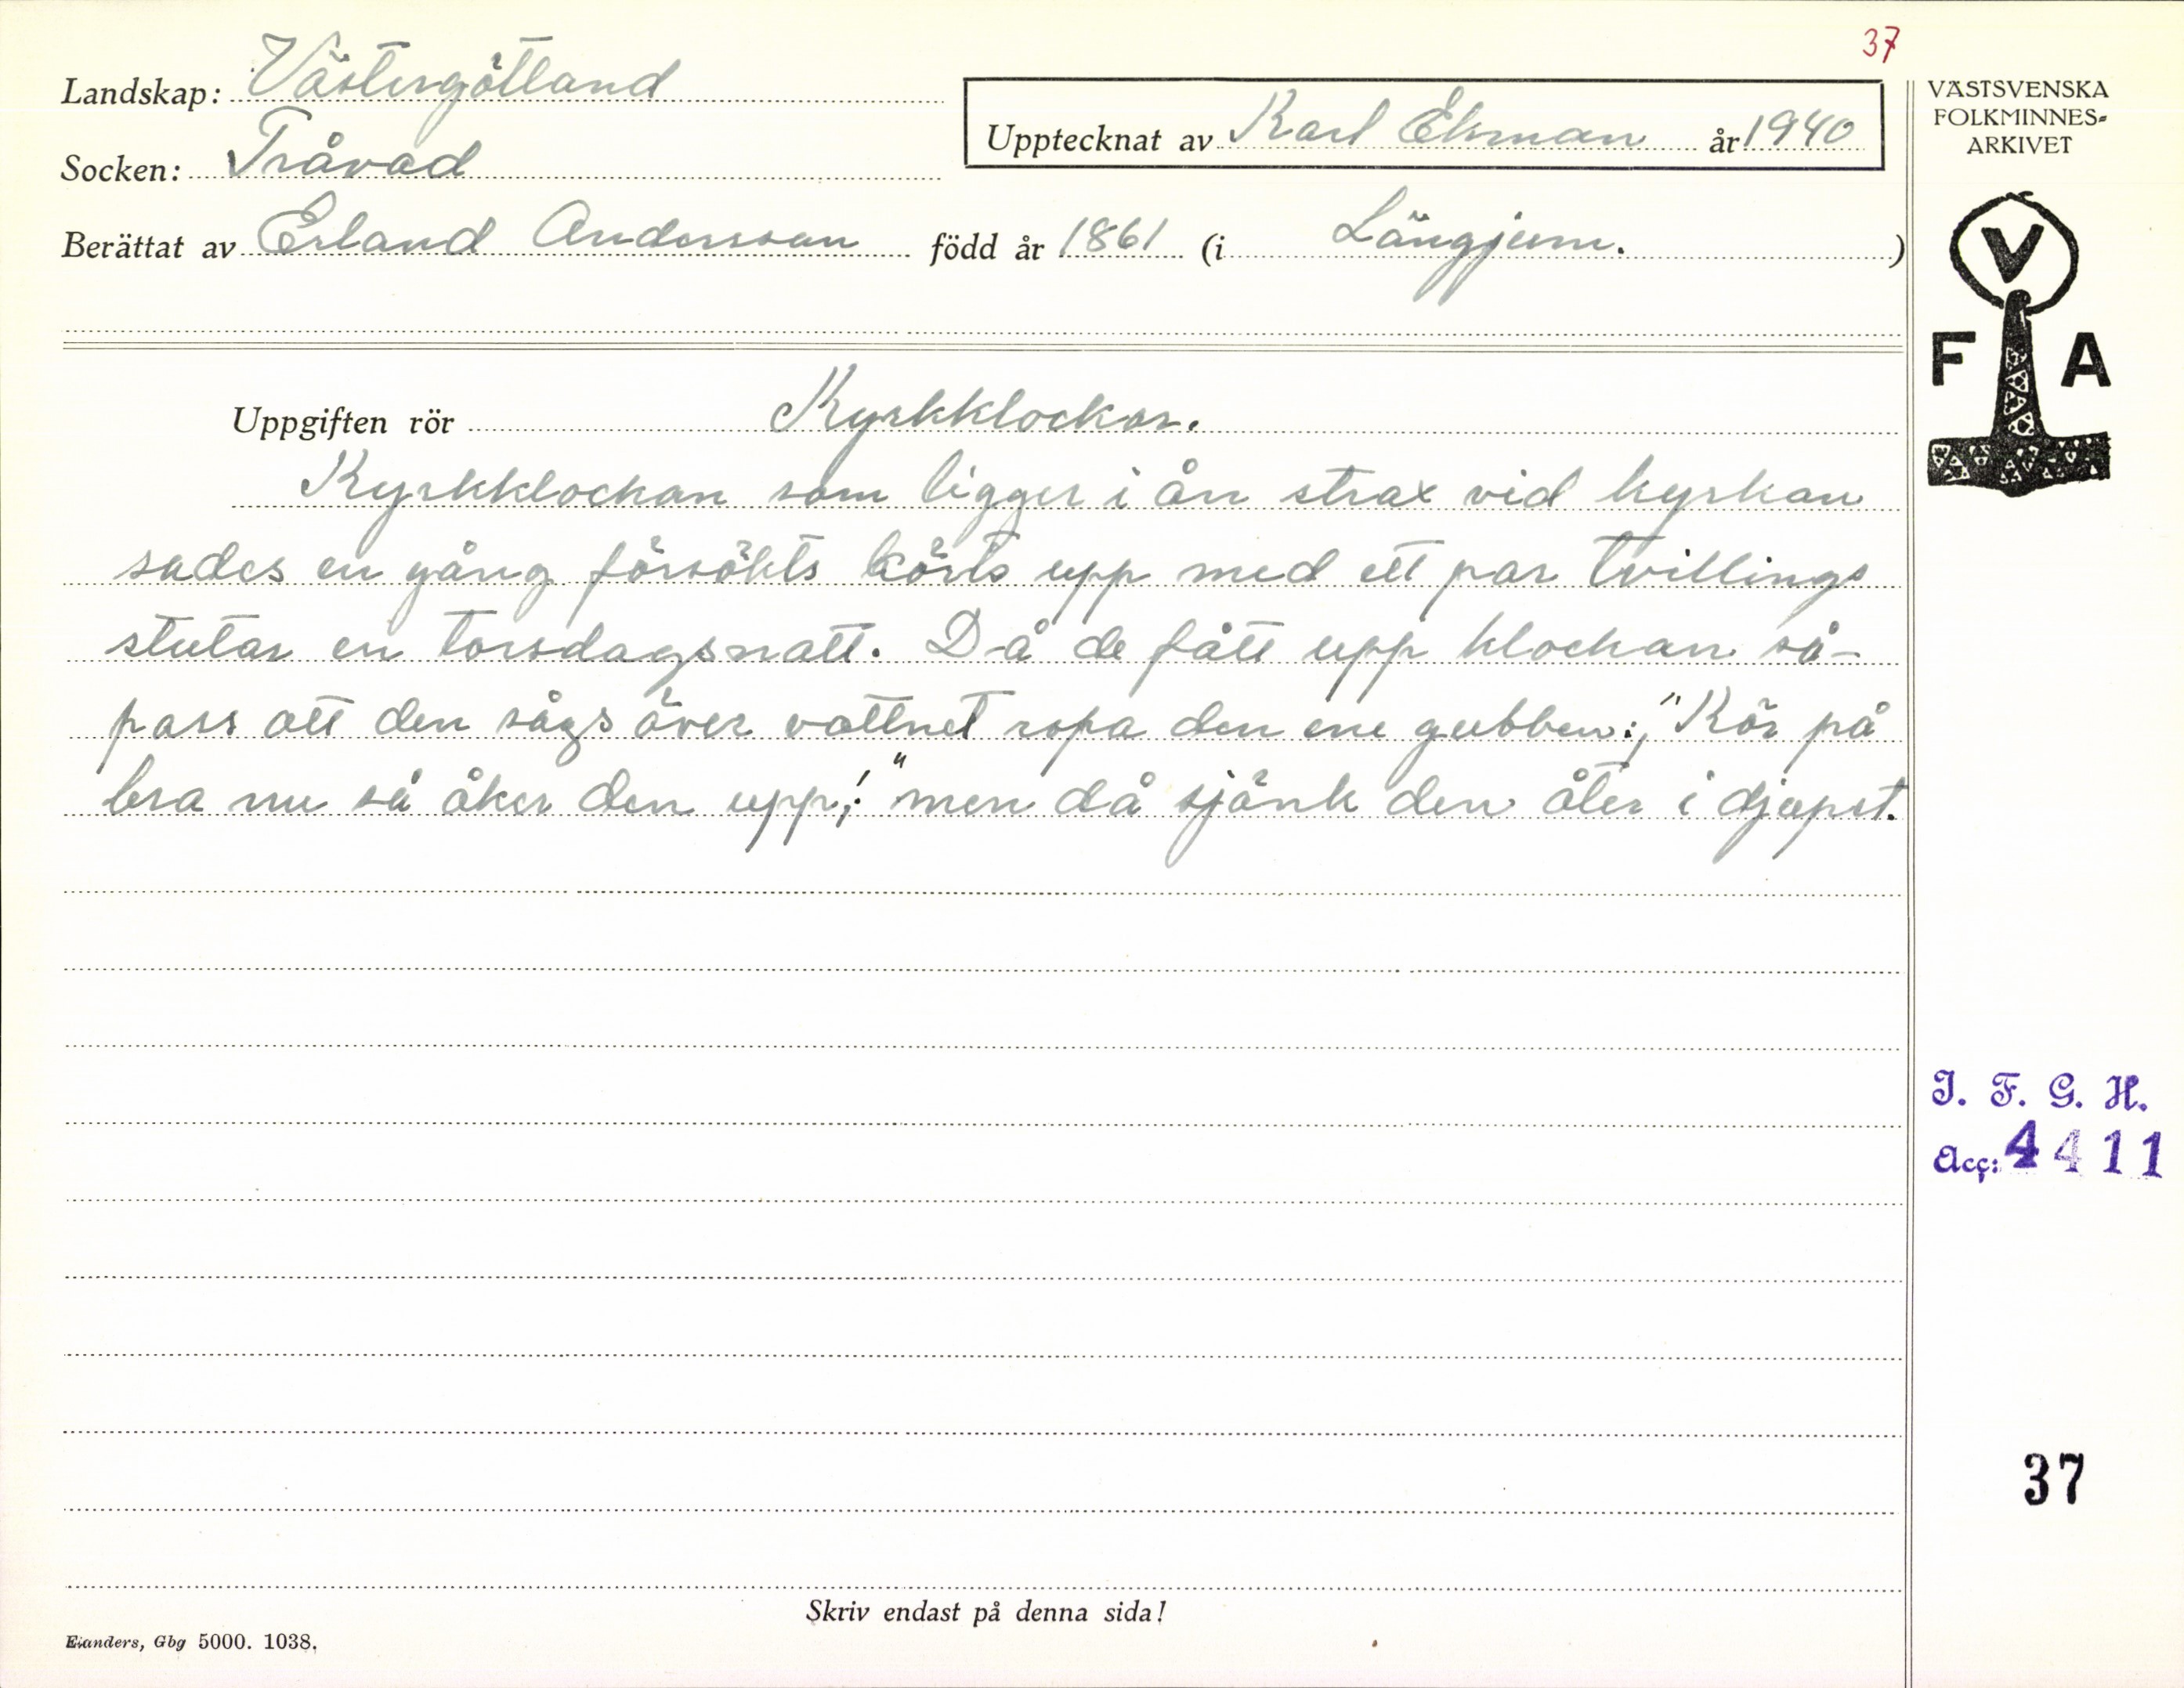 37
Landskap: Västergötland
VÄSTSVENSKA
FOLKMINNES-
ARKIVET
Upptecknat av Karl Ekman år 1940
Socken: Tråvad
Berättat av Erland Andersson född år 1861 (i Längjum.)
V
F A
Uppgiften rör Kyrkklockor.
Kyrkklockan som ligger i ån strax vid kyrkan
sades en gång försökts körts upp med ett par tvillings
stutar en torsdagsnatt. Då de fått upp klockan så-
pass att den sågs över vattnet ropa den ene gubben: "Kör på
bra nu så åker den upp!" men då sjönk den åter i djupet.
I. F. G. H.
Acc: 4411
37
Skriv endast på denna sida!
Elanders, Gbg 5000. 1038.